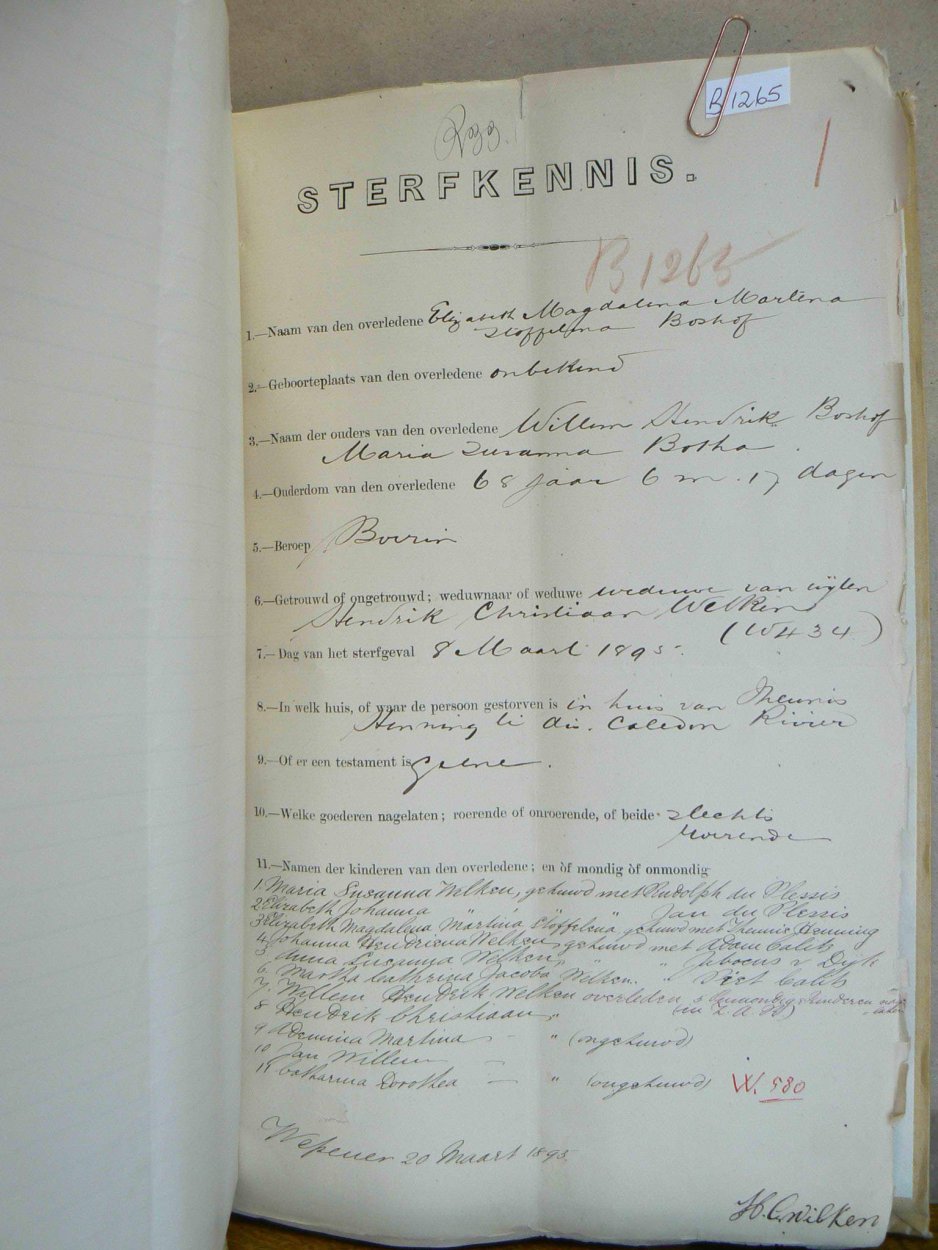 B 1265
STERFKENNIS.
B 1265
1.—Naam van den overledene Elizabeth Magdalena Martena
Stoffelina Boshof
2.—Geboorteplaats van den overledene onbekend
3.—Naam der ouders van den overledene Willem Hendrik Boshof
Maria Susanna Botha.
4.—Ouderdom van den overledene 68 jaar 6 m. 17 dagen
5.—Beroep Boerin
6.—Getrouwd of ongetrouwd; weduwnaar of weduwe weduwe van wijlen
Hendrik Christiaan Welken
(W434)
7.—Dag van het sterfgeval 8 Maart 1895.
8.—In welk huis, of waar de persoon gestorven is in huis van Theunis
Henning te dis. Caledon Rivier
9.—Of er een testament is geene.
10.—Welke goederen nagelaten; roerende of onroerende, of beide slechts
roerende
11.—Namen der kinderen van den overledene; en òf mondig òf onmondig
1. Maria Susanna Wilken, gehuwd met Rudolph du Plessis
2 Elizabeth Johanna " " " Jan du Plessis
3 Elizabeth Magdalena Martina Stoffelina gehuwd met Theunis Henning
4. Johanna Hendriena Welken gehuwd met Adam Calitz
5 Anna Susanna Welken, " " Jacobus v Dijk
6. Martha Cathrina Jacoba Welken. " Piet Calitz
7. Willem Hendrik Welken overleden, 3 onmondige kinderen
8 Hendrik Christiaan " (in Z. A. R)
9 Martina — " (ongehuwd)
10 Jan Willem —
11 Catharina Dorothea — " (ongehuwd) W. 580
Wepener 20 Maart 1895.
H. C. Wilken